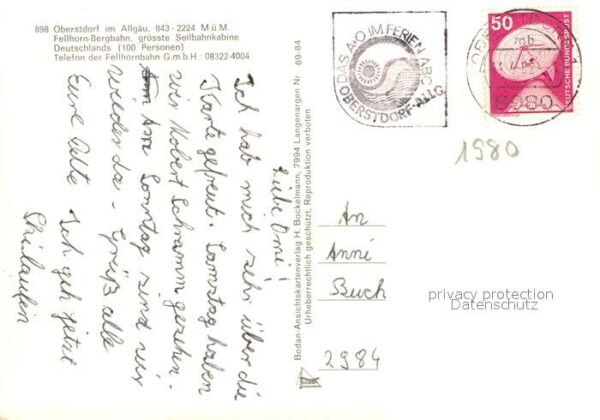 898 Oberstdorf im Allgäu, 843 - 2224 M.ü.M.
Fellhorn-Bergbahn, grösste Seilbahnkabine
Deutschlands (100 Personen)
Telefon der Fellhornbahn G.m.b.H.: 08322-4004
Liebe Omi!
Ich hab mich sehr über die
Karte gefreut. Samstag haben
wir Robert Schramm gesehen.
Am Sonntag sind wir
wieder da. Grüß alle
Eure Ute Ich geh jetzt
Skilaufen
Bodan-Ansichtskartenverlag H. Bockelmann, 7994 Langenargen Nr. 69-84
Urheberrechtlich geschützt. Reproduktion verboten
DAS A·O IM FERIEN ABC
OBERSTDORF-ALLG.
50
DEUTSCHE BUNDESPOST
mb
8980
1980
An
Anni
Buch
2984
privacy protection
Datenschutz